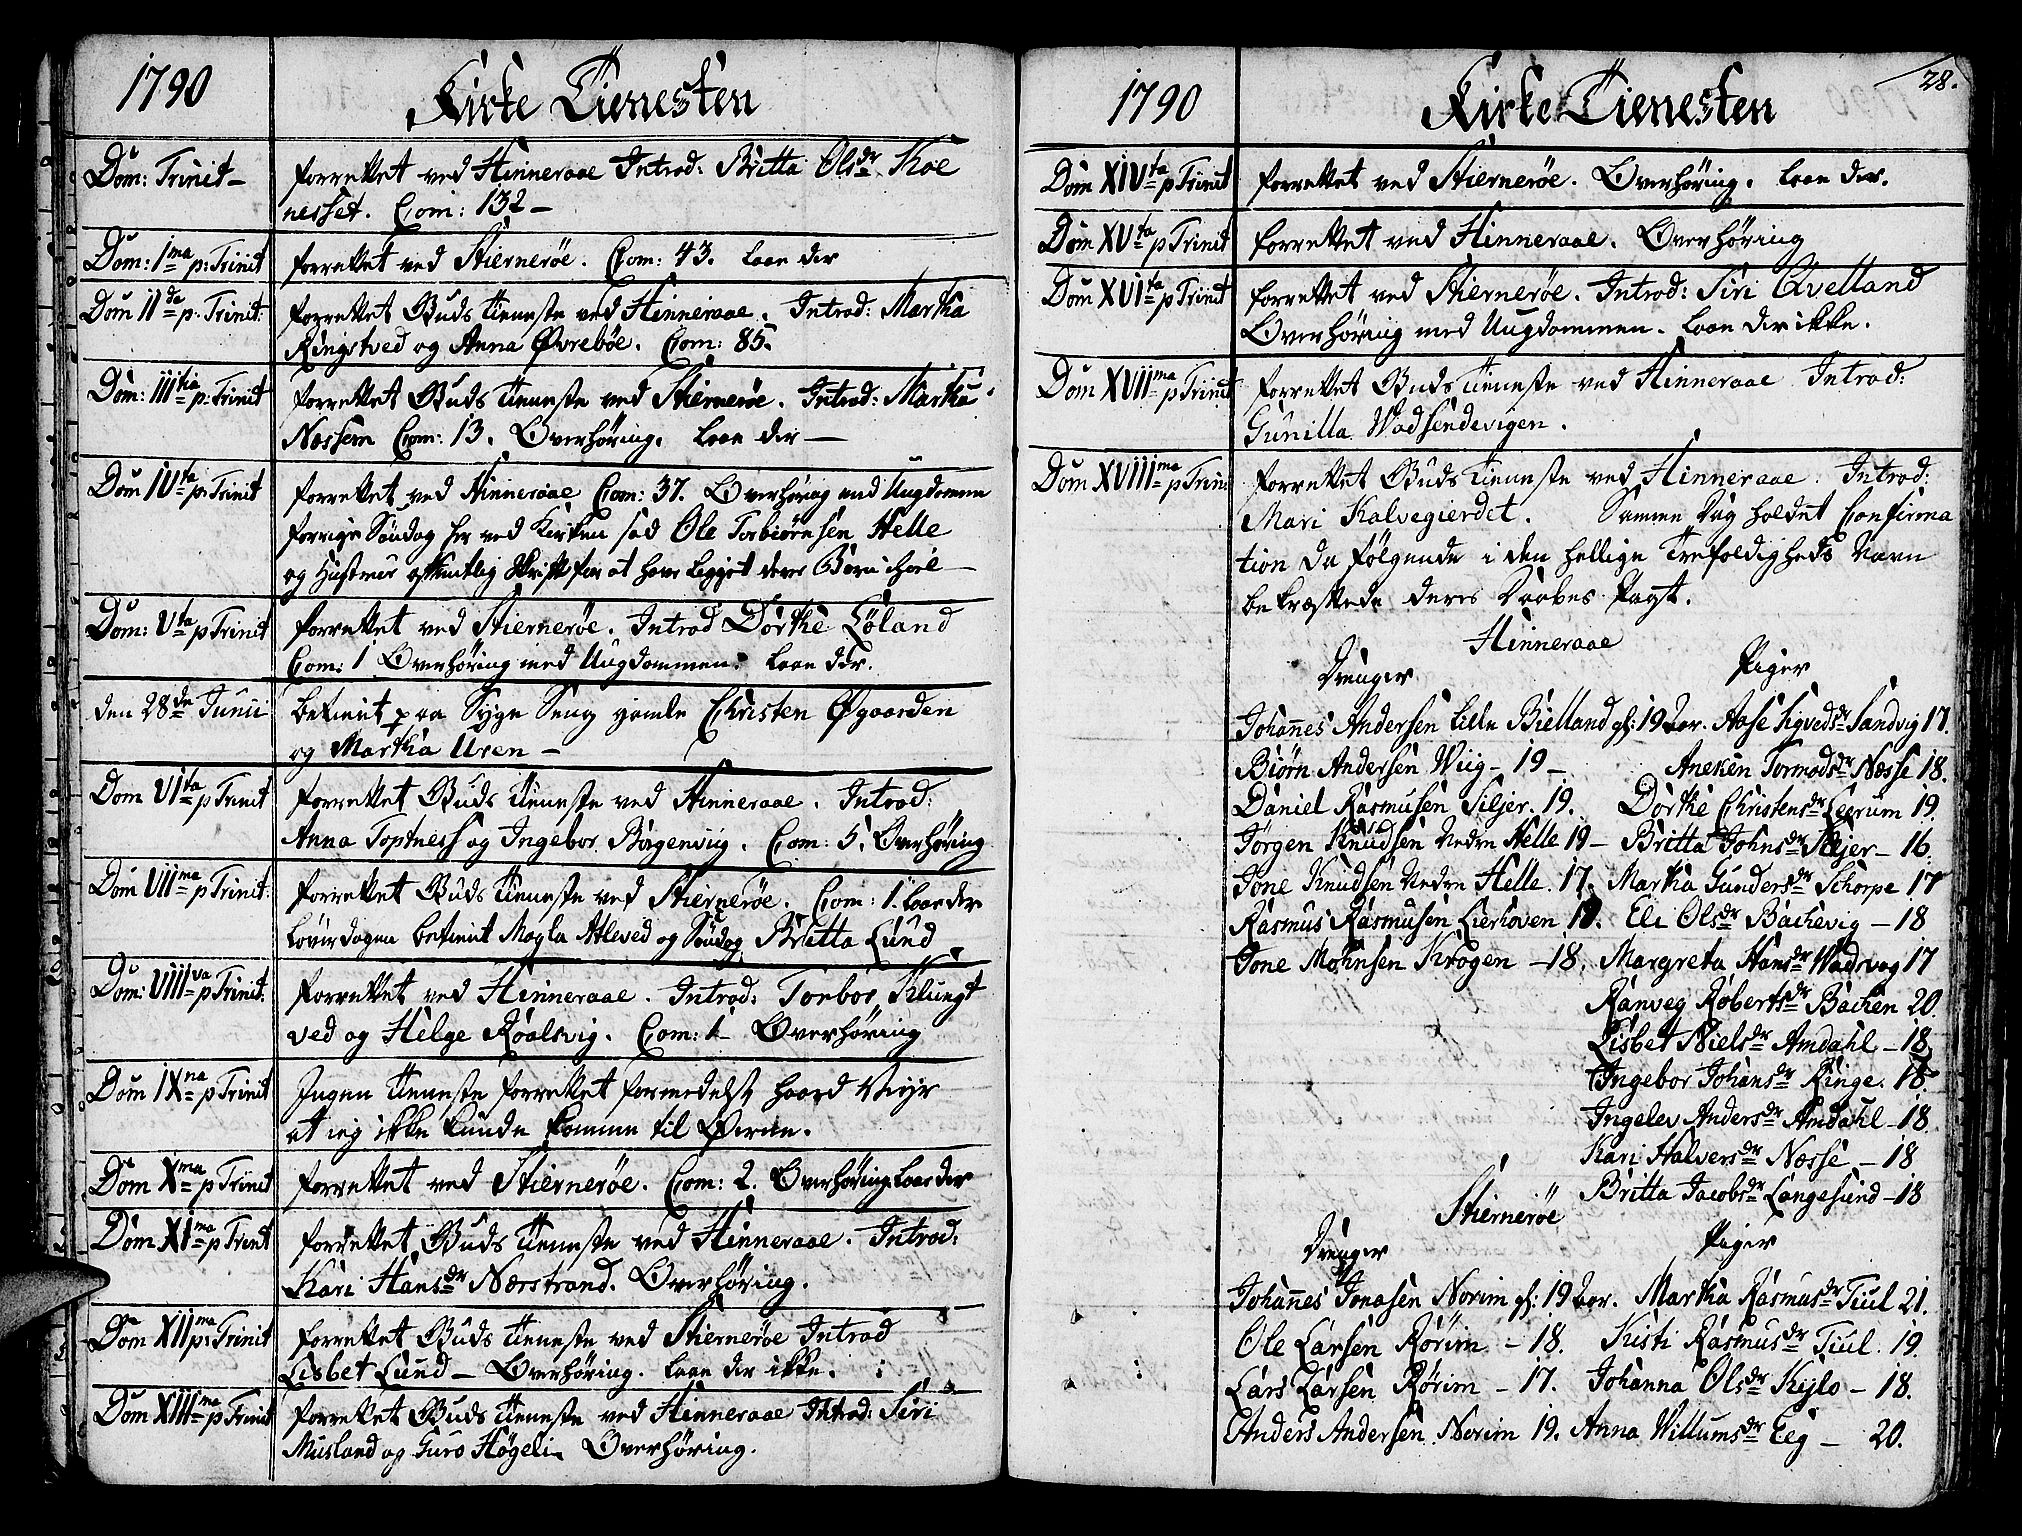 1790
Kirke Tienesten
Dom: Trinit
forrettet ved Hinneraae Introd: Britta Olsdr Koe
nesset. Com: 132
Dom: Ima p: Trinit
forrettet ved Stiernerøe. Com: 43. laae der
Dom IIda p: Trinit:
forrettet Guds Tieneste ved Hinneraae. Introd: Martha
Ringstved og Anna Øvrebøe. Com: 85.
Dom: IIItia p: Trinit
forrettet Guds Tieneste ved Stiernerøe. Introd: Martha
Nessem Com: 13. Overhøring. laae der
Dom IVta p: Trinit
forrettet ved Hinneraae Com: 37. Overhøring med Ungdommen
forrige Søndag her ved Kirken stod Ole Torbiørnsen Helle
og Hustrue offentlig Skrifte for at have legget deres Barn ihiel
Dom: Vta p Trinit
forrettet ved Stiernerøe. Introd Dorthe Løland
Com: 1 Overhøring med Ungdommen. laae der.
den 28de Junii
betient paa Syge Seng gamle Christen Øgaarden
og Martha Uren
Dom VIta p Trinit
forrettet Guds Tieneste ved Hinneraae. Introd:
Anna Toptness og Ingebor Borgenviig. Com: 5. Overhøring
Dom VIIma p Trinit:
forrettet Guds Tieneste ved Stiernerøe. Com: 1. laae der
Løverdagen betient Magla Atleved og Søndag Britta Lund
Dom: VIIIva p Trinit:
forrettet ved Hinneraae. Introd: Torbor Klungt
ved og Helge Roalsvig. Com: 1 Overhøring
Dom IXna p Trinit
Ingen Tieneste forrettet formedelst haard Veyr
at ieg ikke kunde komme til Øerne.
Dom Xma p Trinit
forrettet ved Stiernerøe. Com: 2. Overhøring. laae der
Dom XIma p Trinit
forrettet Guds Tieneste ved Hinneraae. Introd:
Kari Hansdr Nærstrand. Overhøring.
Dom XIIma p: Trinit
forrettet Guds Tieneste ved Stiernerøe Introd
Lisbet Lund — Overhøring. laae der ikke.
Dom XIIIma p Trinit
forrettet Guds Tieneste ved Hinneraae Introd: Siri
Musland og Guro Høgeli Overhøring.
28.
1790
Kirke Tienesten
Dom XIVta p Trinit
forrettet ved Stiernerøe. Overhøring. laae der.
Dom XVta p Trinit
forrettet ved Hinneraae. Overhøring
Dom XVIta p Trinit
forrettet ved Stiernerøe. Introd: Siri Qvelland
Overhøring med Ungdommen. laae der ikke.
Dom XVIIma p Trinit
forrettet Guds Tieneste ved Hinneraae Introd:
Gunilla Wadsendevigen.
Dom XVIIIma p Trin:
forrettet Guds Tieneste ved Hinneraae: Introd:
Mari Kalvegierdet. Samme Dag holdet Confirma
tion da følgende i den hellige Trefoldigheds Navn
bekræftede deres Daabes Pagt.
Hinneraae
Drenger Piger
Johannes Andersen Lille Bielland gl: 19 Aar. Aase Sigvedsdr Sandvig 17.
Biørn Andersen Wiig — 19 — Aneken Tormodsdr Nesse 18.
Daniel Rasmusen Siljer. 19. Dorthe Christensdr Leerum 19.
Jørgen Knudsen Nedre Helle 19 — Britta Johnsdr Skejer — 16.
Tone Knudsen Nedre Helle. 17. Martha Gundersdr Schorpe 17
Rasmus Rasmusen Lierhoven 18. Eli Olsdr Bachevig — 18
Tone Mohnsen Krogen — 18. Margreta Hansdr Wadsvag 17
Ranveg Robertsdr Bachen 20.
Lisbet Nielsdr Amdahl — 18
Ingebor Johansdr Ringe. 18
Ingelev Andersdr Amdahl — 18
Kari Halversdr Nesse — 18
Britta Jacobsdr Langesund — 18
Stiernerøe
Drenger Piger
Johannes Jonasen Norim gl: 19 Aar. Martha Rasmusdr Tuul 21.
Ole Larsen Rørim — 18. Kisti Rasmusdr Tuul. 19.
Lars Larsen Rørim — 17. Johanna Olsdr Kijlo — 18.
Anders Andersen Norim 19. Anna Willumsdr Eeg — 20.